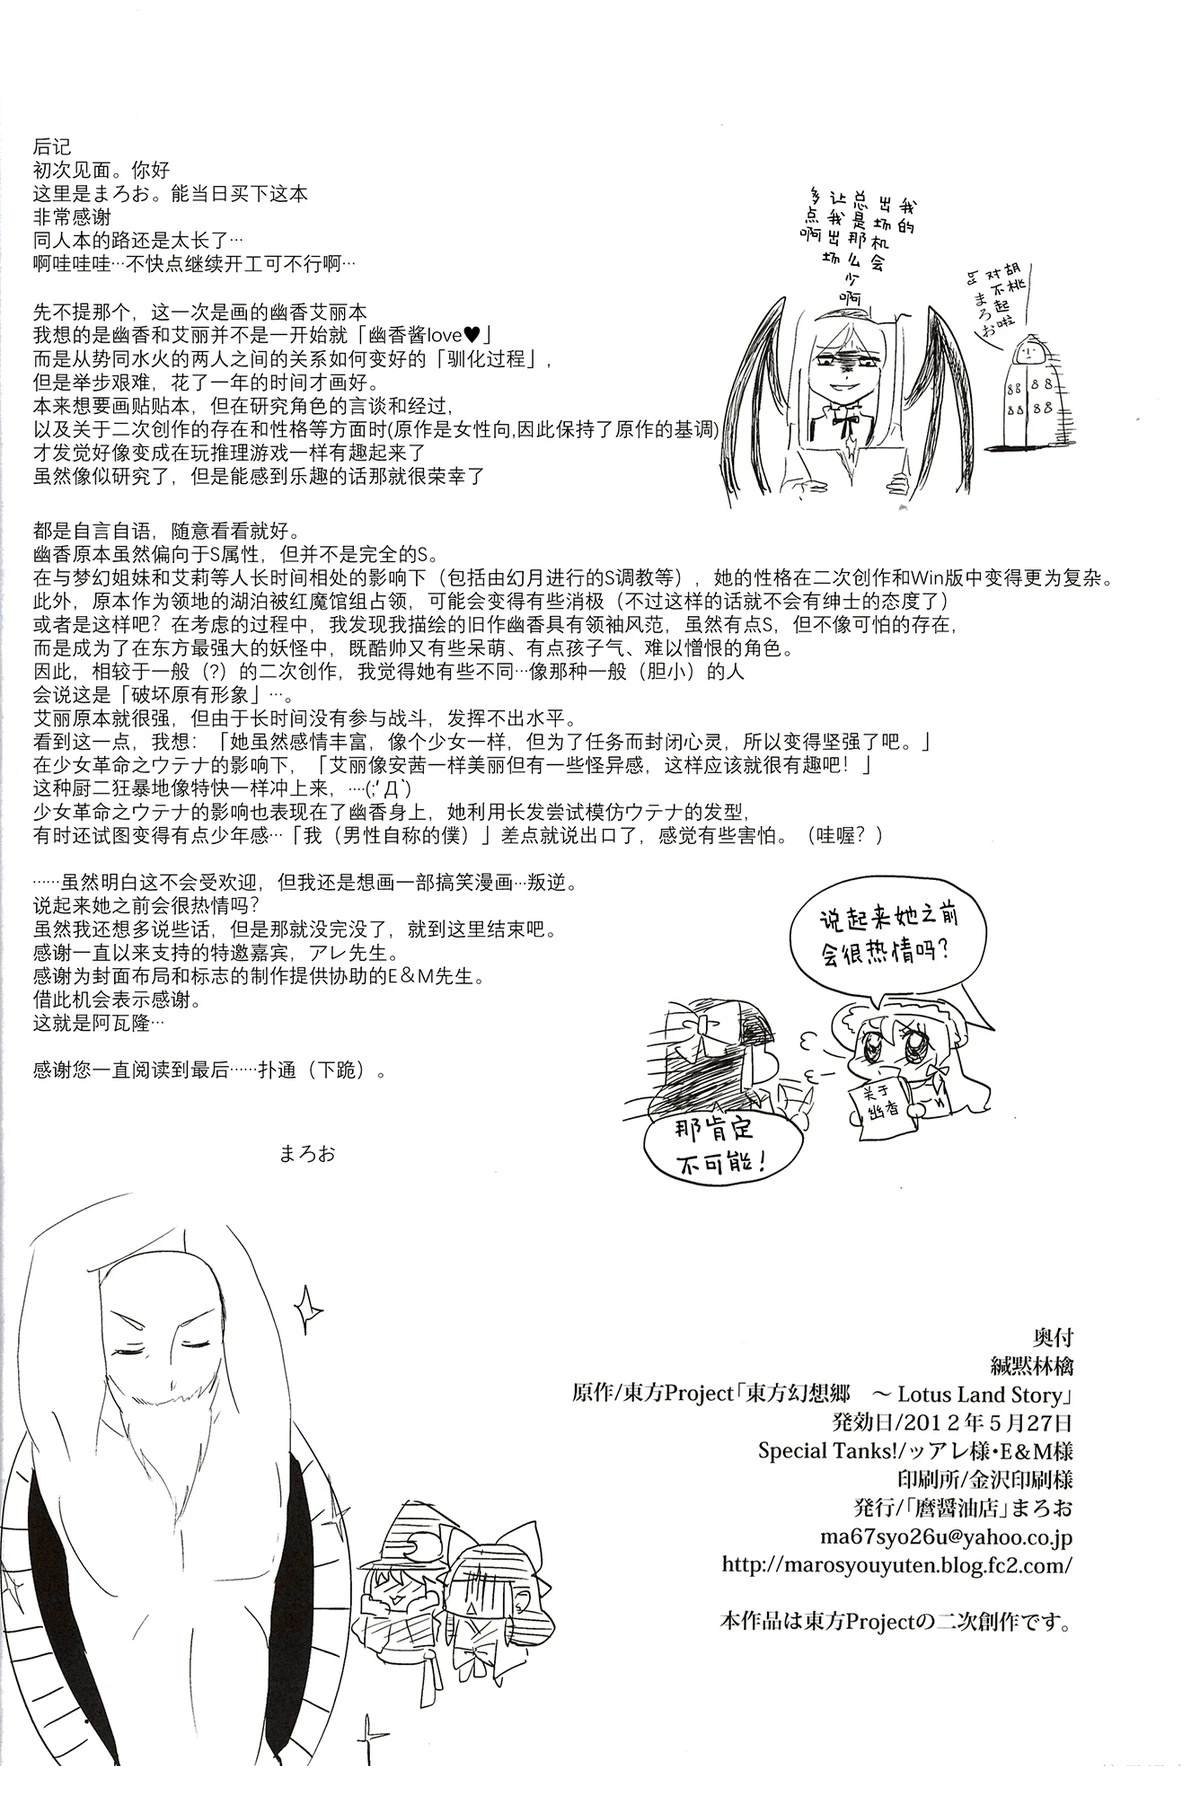 后记
初次见面。你好
这里是まろお。能当日买下这本
非常感谢
同人本的路还是太长了…
啊哇哇哇…不快点继续开工可不行啊…
先不提那个，这一次是画的幽香艾丽本
我想的是幽香和艾丽并不是一开始就「幽香酱love♥」
而是从势同水火的两人之间的关系如何变好的「驯化过程」,
但是举步艰难，花了一年的时间才画好。
本来想要画贴贴本，但在研究角色的言谈和经过,
以及关于二次创作的存在和性格等方面时(原作是女性向,因此保持了原作的基调)
才发觉好像变成在玩推理游戏一样有趣起来了
虽然像似研究了，但是能感到乐趣的话那就很荣幸了
都是自言自语，随意看看就好。
幽香原本虽然偏向于S属性，但并不是完全的S。
在与梦幻姐妹和艾莉等人长时间相处的影响下（包括由幻月进行的S调教等）,她的性格在二次创作和Win版中变得更为复杂。
此外，原本作为领地的湖泊被红魔馆组占领，可能会变得有些消极（不过这样的话就不会有绅士的态度了）
或者是这样吧？在考虑的过程中，我发现我描绘的旧作幽香具有领袖风范，虽然有点S，但不像可怕的存在,
而是成为了在东方最强大的妖怪中，既酷帅又有些呆萌、有点孩子气、难以憎恨的角色。
因此，相较于一般（?）的二次创作，我觉得她有些不同…像那种一般（胆小）的人
会说这是「破坏原有形象」…。
艾丽原本就很强，但由于长时间没有参与战斗，发挥不出水平。
看到这一点，我想：「她虽然感情丰富，像个少女一样，但为了任务而封闭心灵，所以变得坚强了吧。」
在少女革命之ウテナ的影响下，「艾丽像安茜一样美丽但有一些怪异感，这样应该就很有趣吧！」
这种厨二狂暴地像特快一样冲上来，….(;´Д`)
少女革命之ウテナ的影响也表现在了幽香身上，她利用长发尝试模仿ウテナ的发型,
有时还试图变得有点少年感…「我（男性自称的僕）」差点就说出口了，感觉有些害怕。（哇喔？）
……虽然明白这不会受欢迎，但我还是想画一部搞笑漫画…叛逆。
说起来她之前会很热情吗?
虽然我还想多说些话，但是那就没完没了，就到这里结束吧。
感谢一直以来支持的特邀嘉宾，アレ先生。
感谢为封面布局和标志的制作提供协助的E&M先生。
借此机会表示感谢。
这就是阿瓦隆…
感谢您一直阅读到最后……扑通（下跪）。
まろお
我的
出场机会
总是那么少啊
让我出场
多点啊
胡桃
对不起啦
まろお
说起来她之前
会很热情吗?
关于
幽香
那肯定
不可能!
奥付
緘黙林檎
原作/東方Project「東方幻想郷　～ Lotus Land Story」
発効日/2012年５月27日
Special Tanks!/ッアレ様・E&M様
印刷所/金沢印刷様
発行/「麿醤油店」まろお
ma67syo26u@yahoo.co.jp
http://marosyouyuten.blog.fc2.com/
本作品は東方Projectの二次創作です。